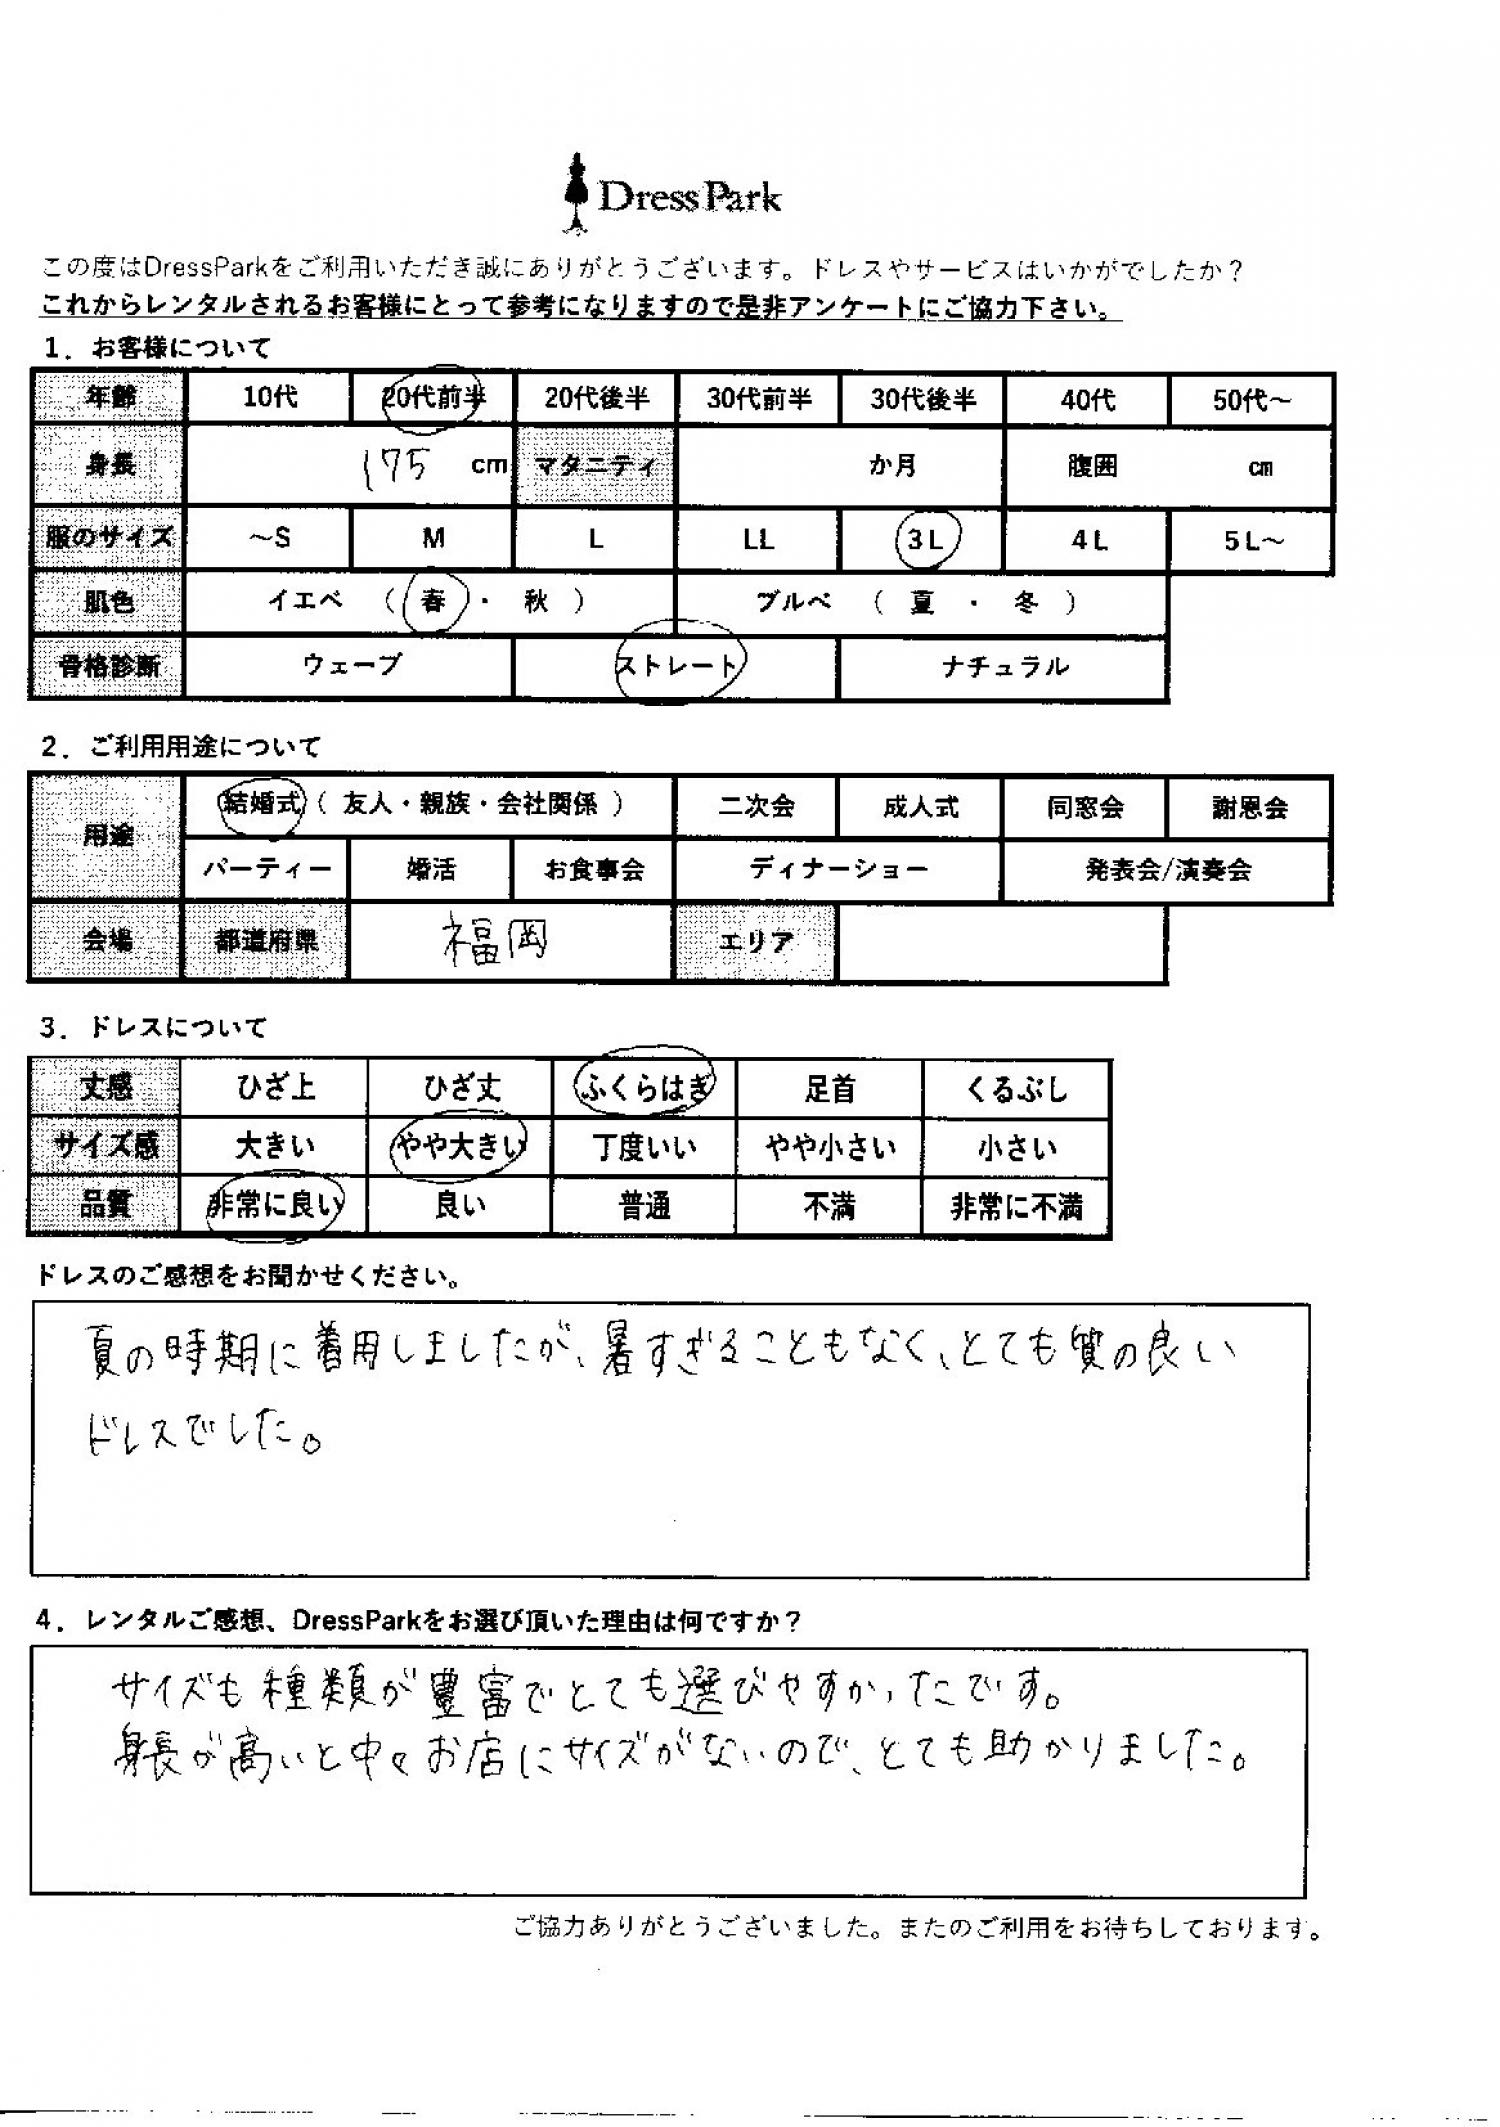 DressPark
この度はDressParkをご利用いただき誠にありがとうございます。ドレスやサービスはいかがでしたか？
これからレンタルされるお客様にとって参考になりますので是非アンケートにご協力下さい。
1．お客様について
年齢 10代 20代前半 20代後半 30代前半 30代後半 40代 50代～
身長 175 cm マタニティ か月 腹囲 cm
服のサイズ ～S M L LL 3L 4L 5L～
肌色 イエベ （ 春 ・ 秋 ） ブルベ （ 夏 ・ 冬 ）
骨格診断 ウェーブ ストレート ナチュラル
2．ご利用用途について
用途 結婚式（ 友人・親族・会社関係 ） 二次会 成人式 同窓会 謝恩会
パーティー 婚活 お食事会 ディナーショー 発表会/演奏会
会場 都道府県 福岡 エリア
3．ドレスについて
丈感 ひざ上 ひざ丈 ふくらはぎ 足首 くるぶし
サイズ感 大きい やや大きい 丁度いい やや小さい 小さい
品質 非常に良い 良い 普通 不満 非常に不満
ドレスのご感想をお聞かせください。
夏の時期に着用しましたが、暑すぎることもなく、とても質の良い
ドレスでした。
4．レンタルご感想、DressParkをお選び頂いた理由は何ですか？
サイズも種類が豊富でとても選びやすかったです。
身長が高いと中々お店にサイズがないので、とても助かりました。
ご協力ありがとうございました。またのご利用をお待ちしております。